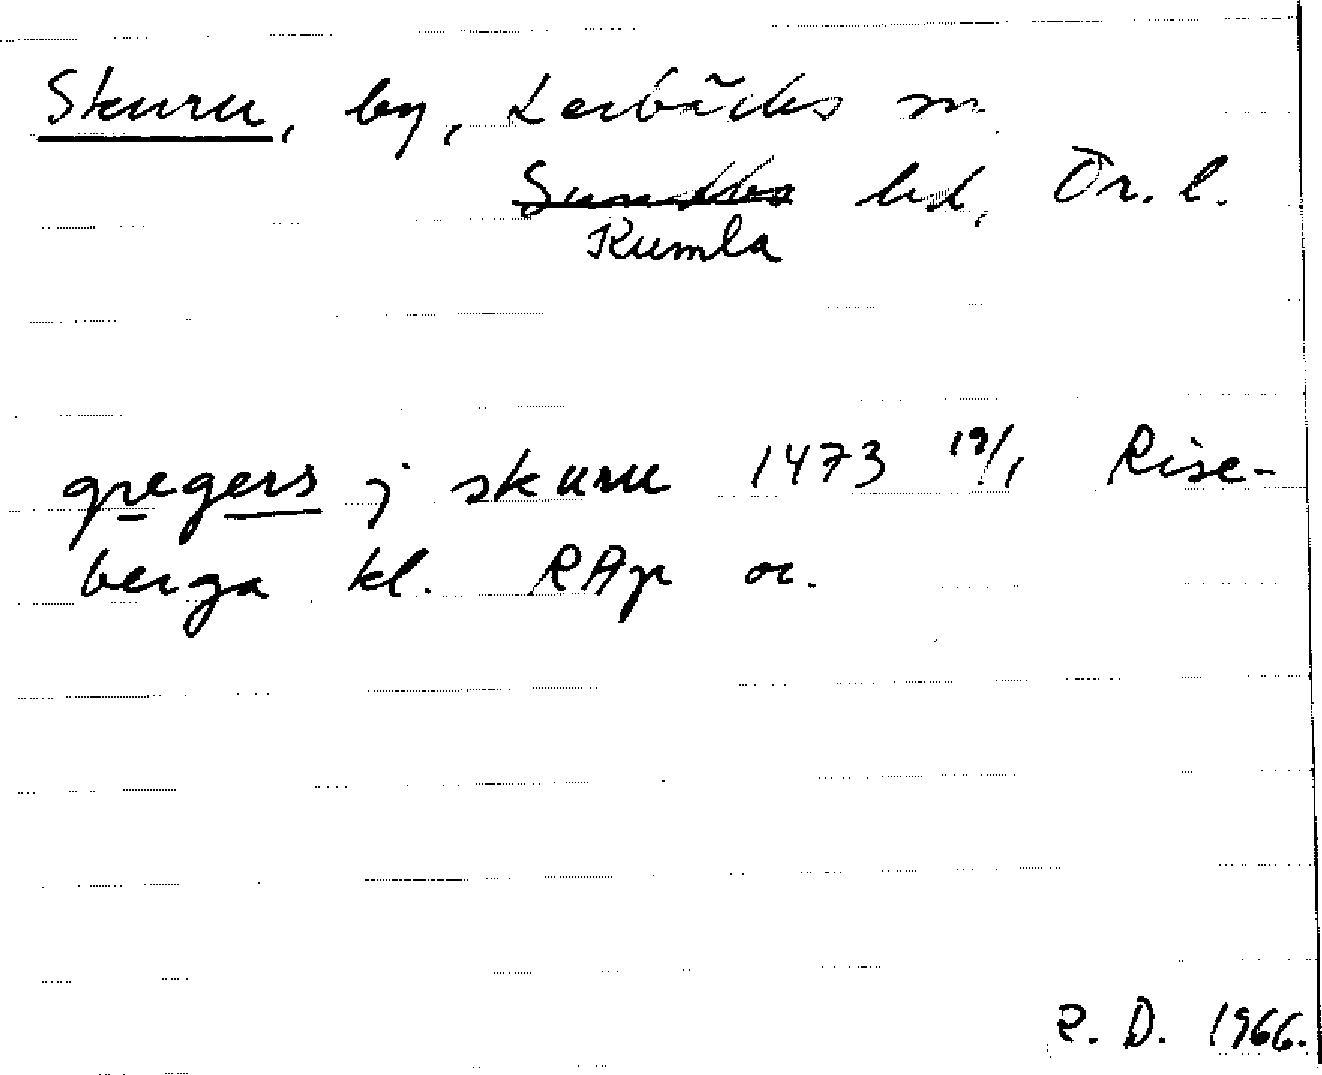 Skuru, by, Lerbäcks sn
hd, Ör. l.
Kumla
gregers j skuru 1473 19/1 Rise-
berga kl. RAp or.
R. D. 1966.